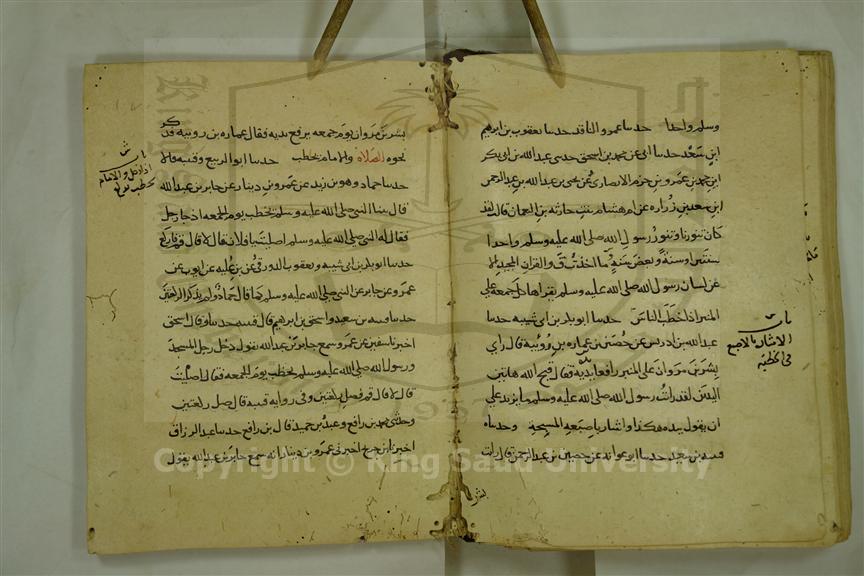 وسلم واحدا حدثنا عمرو الناقد حدثنا يعقوب بن ابرهيم
ابن سعد حدثنا ابى عن محمد بن اسحق حدثنى عبدالله بن ابى بكر
ابن محمد بن عمرو بن حزم الانصارى عن يحيى بن عبدالله بن عبدالرحمن
ابن سعد بن زرارة عن ام هشام بنت حارثه بن النعمان قالت لقد
كان تنورنا وتنور رسول الله صلى الله عليه وسلم واحدا
سنتين او سنة وبعض سنة ما اخذت ق والقران المجيد الا
عن لسان رسول الله صلى الله عليه وسلم يقراها كل جمعة على
المنبر اذا خطب الناس حدثنا ابو بكر بن ابى شيبه حدثنا
عبدالله بن ادريس عن حصين عن عماره بن رويبه قال راى
بشر بن مروان على المنبر رافعا يديه فقال قبح الله هاتين
اليدين لقد رايت رسول الله صلى الله عليه وسلم ما يزيد على
ان يقول بيده هكذا واشار باصبعه المسبحة وحدثناه
قتيبه بن سعيد حدثنا ابو عوانه عن حصين بن عبدالرحمن قال رايت
باب
الاشارة بالاصبع
فى الخطبه
بشر
بشر بن مروان يوم جمعه يرفع يديه فقال عماره بن رويبه فذكر
نحوه الصلاة والامام يخطب حدثنا ابو الربيع وقتيبه قالا
حدثنا حماد وهو بن زيد عن عمرو بن دينار عن جابر بن عبدالله
قال بينا النبى صلى الله عليه وسلم يخطب يوم الجمعه اذ جا رجل
فقال له النبى صلى الله عليه وسلم اصليت يا فلان قال لا قال قم فاركع
حدثنا ابو بكر بن ابى شيبه ويعقوب الدورقى عن بن عليه عن ايوب عن
عمرو عن جابر عن النبى صلى الله عليه وسلم كما قال حماد ولم يذكر الركعتين
حدثنا قتيبه بن سعيد واسحق بن ابرهيم قال قتيبه حدثنا وقال اسحق
اخبرنا سفين عن عمرو سمع جابر بن عبدالله يقول دخل رجل المسجد
ورسول الله صلى الله عليه وسلم يخطب يوم الجمعه فقال اصليت
قال لا قال قم فصل ركعتين وفى روايه قتيبه قال صل ركعتين
وحدثنى محمد بن رافع وعبد بن حميد قال بن رافع حدثنا عبدالرزاق
اخبرنا بن جريج اخبرنى عمرو بن دينار انه سمع جابر بن عبدالله يقول
باب
اذا دخل والامام
يخطب
Copyright © King Saud University